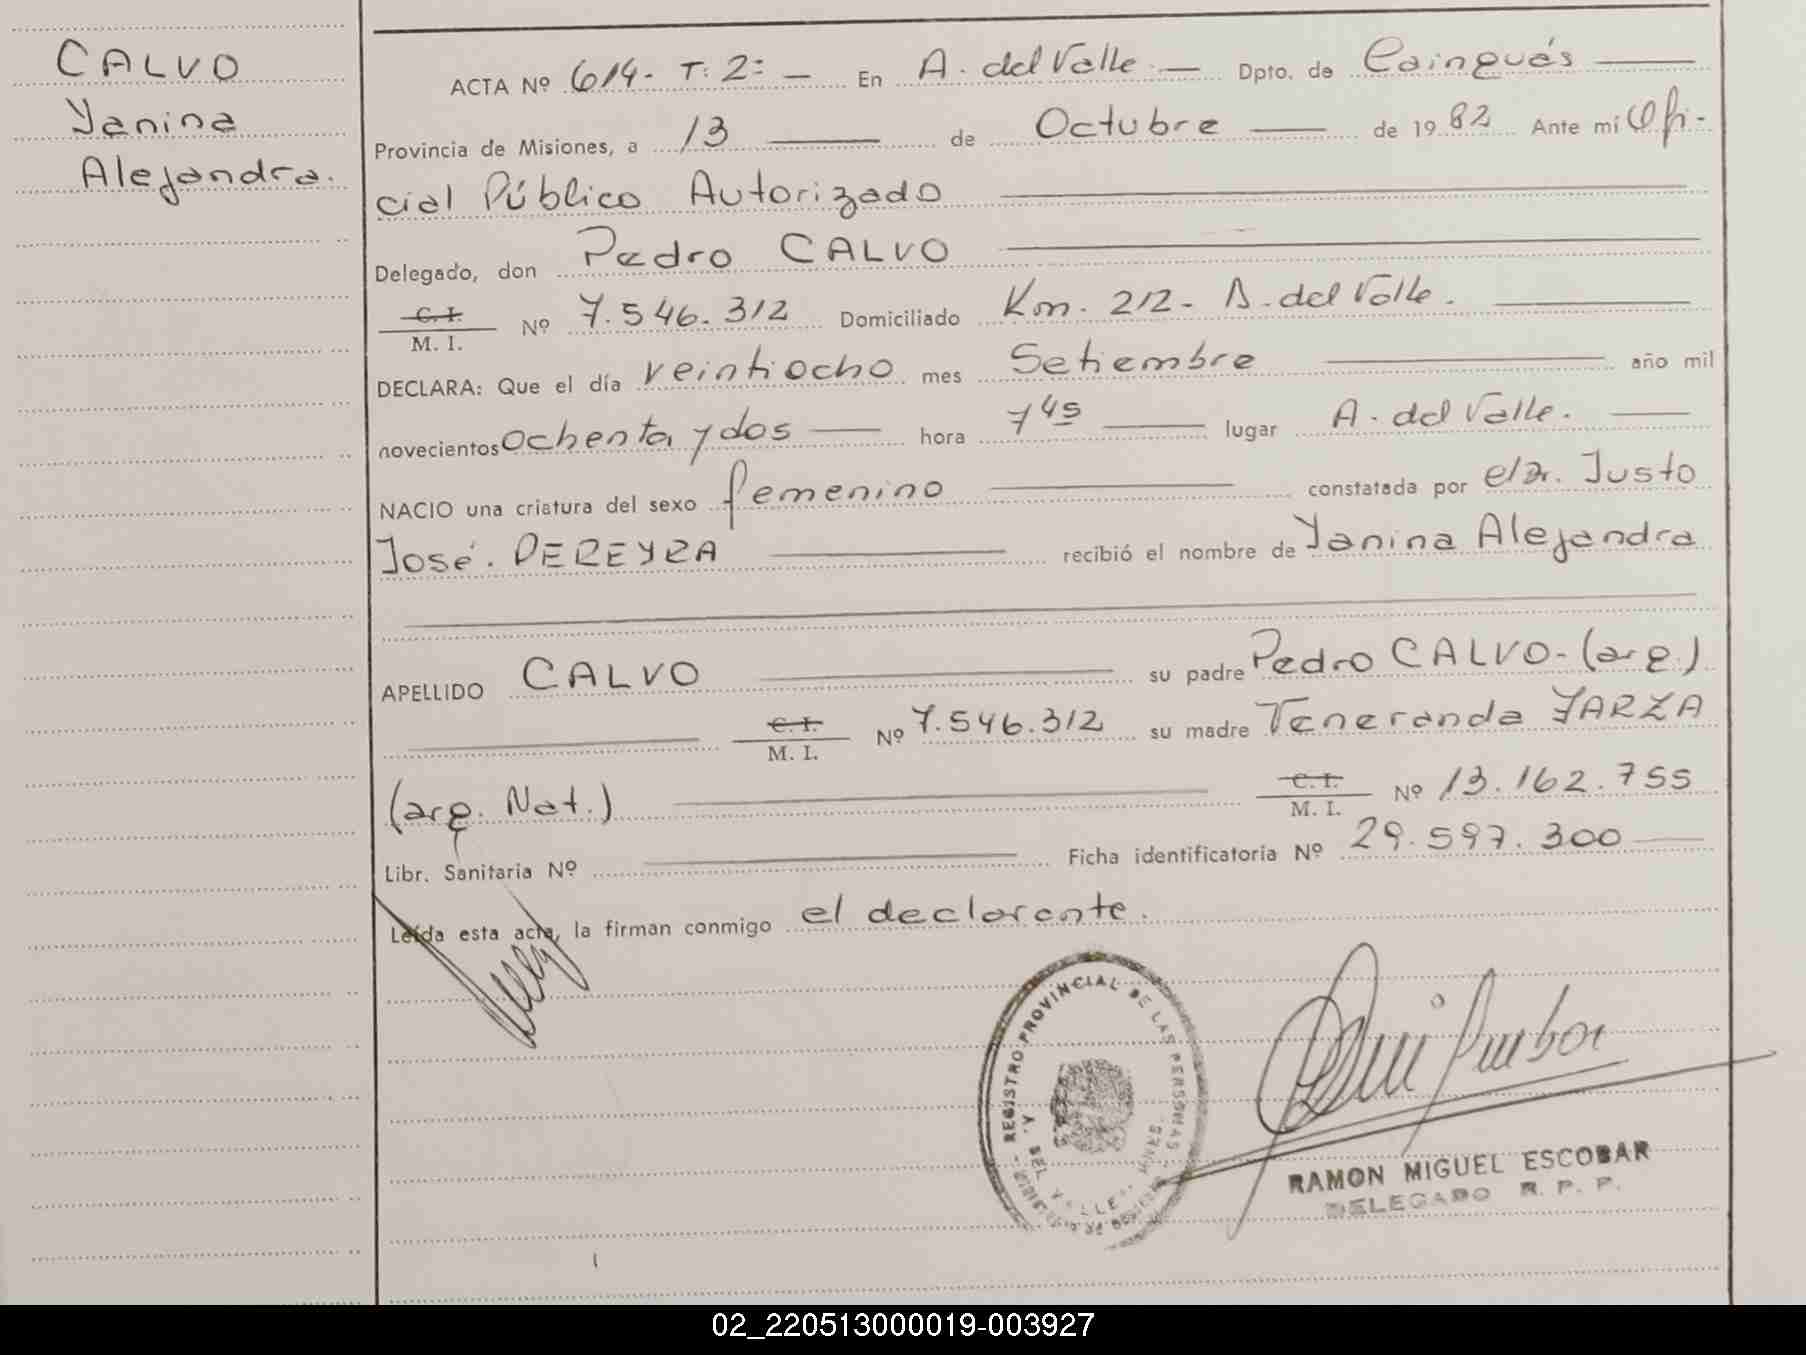 CALVO
Yanina
Alejandra.
ACTA Nº 614- T: 2: — En A. del Valle — Dpto. de Cainguás
Provincia de Misiones, a 13 — de Octubre — de 1982 Ante mí Ofi-
cial Público Autorizado
Delegado, don Pedro CALVO
C. I.
M. I. Nº 7.546.312 Domiciliado Km. 212- A. del Valle.
DECLARA: Que el día veintiocho mes Setiembre año mil
novecientos ochenta y dos — hora 7 45 — lugar A. del Valle.
NACIO una criatura del sexo femenino — constatada por el Dr. Justo
José. PEREYRA — recibió el nombre de Yanina Alejandra
APELLIDO CALVO — su padre Pedro CALVO- (arg.)
C. I.
M. I. Nº 7.546.312 su madre Veneranda YARZA
(arg. Nat.) C. I.
M. I. Nº 13.162.755
Libr. Sanitaria Nº — Ficha identificatoria Nº 29.597.300
Leída esta acta, la firman conmigo el declarante.
REGISTRO PROVINCIAL DE LAS PERSONAS
DEL VALLE
RAMON MIGUEL ESCOBAR
DELEGADO R. P. P.
02_220513000019-003927